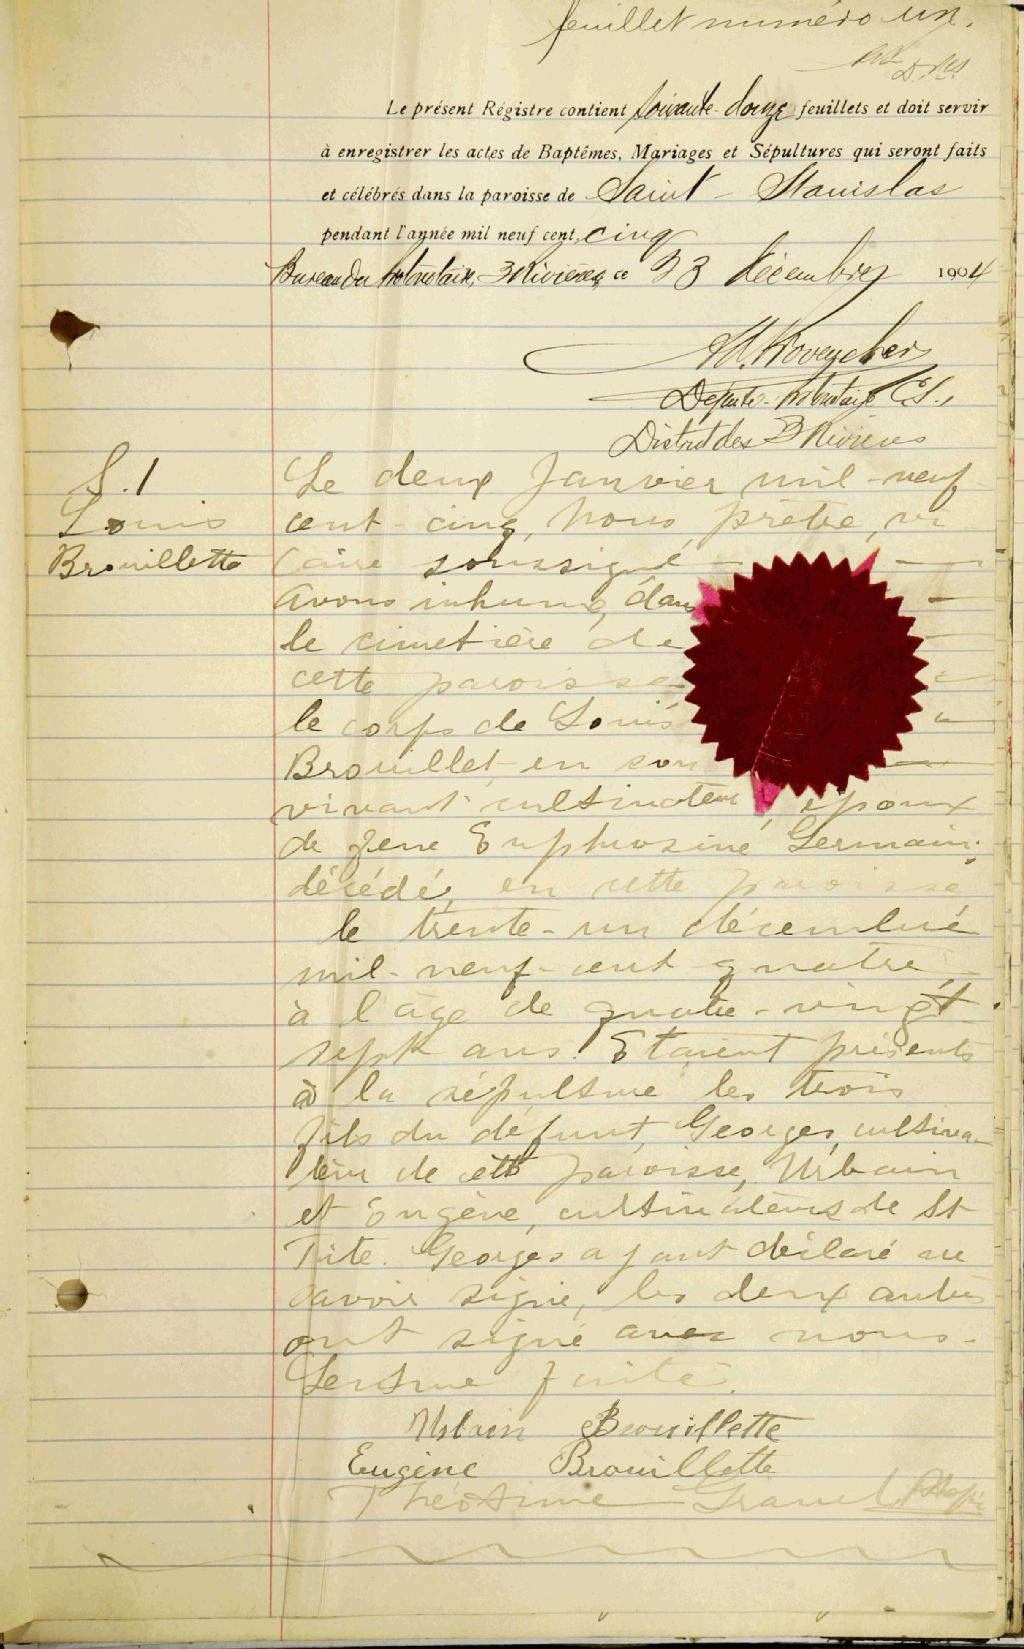 feuillet numéro un.
Le présent Régistre contient soixante-douze feuillets et doit servir
à enregistrer les actes de Baptêmes, Mariages et Sépultures qui seront faits
et célébrés dans la paroisse de Saint-Stanislas
pendant l'année mil neuf cent cinq
Bureau du Protonotaire, 3 Rivières, ce 23 décembre 1904
Député-Protonotaire C.S.,
District des 3 Rivières
S.1
Louis
Brouillette
Le deux Janvier mil-neuf-
cent-cinq, nous, prêtre, vi
caire soussigné
avons inhumé, dans
le cimetière de
cette paroisse
le corps de Louis
Brouillet, en son
vivant cultivateur, époux
de feue Euphrosine Germain,
décédé, en cette paroisse
le trente-un décembre
mil-neuf-cent-quatre,
à l'âge de quatre-vingt
sept ans. Etaient présents
à la sépulture les trois
fils du défunt, Georges, cultiva-
teur de cette paroisse, Urbain
et Eugène, cultivateurs de St
Tite. Georges ayant déclaré ne
savoir signer, les deux autres
ont signé avec nous.
Lecture faite.
Urbain Brouillette
Eugène Brouillette
Théotime Gravel, Ptre